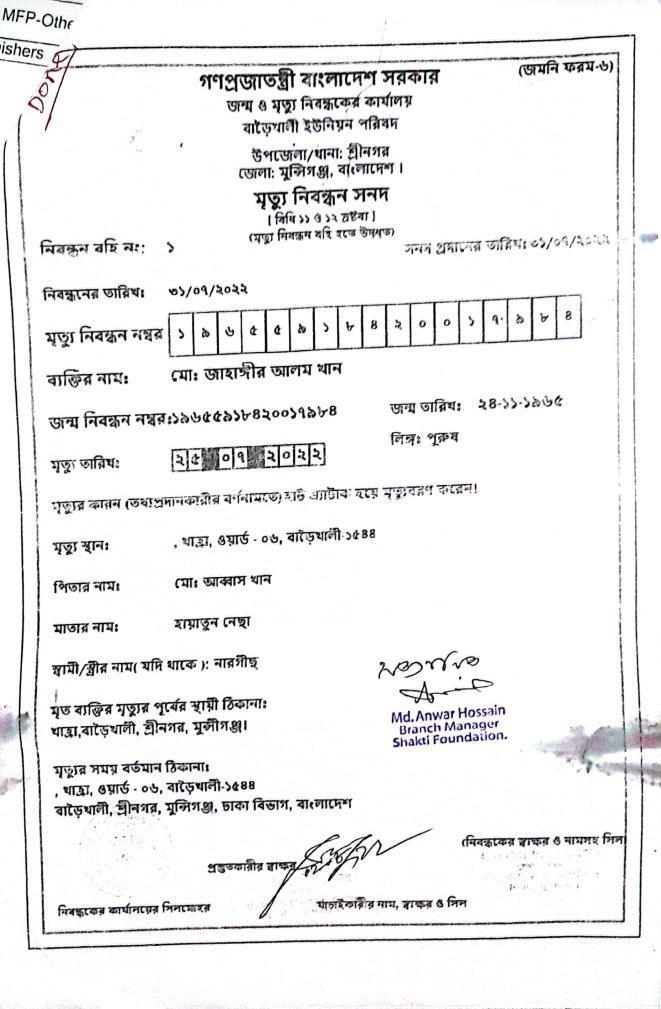 MFP-Othe
ishers
DONA
গণপ্রজাতন্ত্রী বাংলাদেশ সরকার
(জমনি ফরম-৬)
জন্ম ও মৃত্যু নিবন্ধকের কার্যালয়
বাড়ৈখালী ইউনিয়ন পরিষদ
উপজেলা/থানা: শ্রীনগর
জেলা: মুন্সিগঞ্জ, বাংলাদেশ ।
মৃত্যু নিবন্ধন সনদ
[ বিধি ১১ ও ১২ দ্রষ্টব্য ]
(মৃত্যু নিবন্ধন বহি হতে উদ্ধৃত)
নিবন্ধন বহি নং: ১
সনদ প্রদানের তারিখ: ৩১/০৭/২০২২
নিবন্ধনের তারিখ: ৩১/০৭/২০২২
মৃত্যু নিবন্ধন নম্বর ১ ৯ ৬ ৫ ৫ ৯ ১ ৮ ৪ ২ ০ ০ ১ ৭ ৯ ৮ ৪
ব্যক্তির নাম: মো: জাহাঙ্গীর আলম খান
জন্ম নিবন্ধন নম্বর:১৯৬৫৫৯১৮৪২০০১৭৯৮৪
জন্ম তারিখ: ২৪-১১-১৯৬৫
লিঙ্গ: পুরুষ
মৃত্যু তারিখ: ২ ৫ ০ ৭ ২ ০ ২ ২
মৃত্যুর কারন (তথ্যপ্রদানকারীর বর্ণনামতে) হার্ট এ্যাটাক হয়ে মৃত্যুবরণ করেন।
মৃত্যু স্থান: , খাহ্রা, ওয়ার্ড - ০৬, বাড়ৈখালী-১৫৪৪
পিতার নাম: মো: আব্বাস খান
মাতার নাম: হায়াতুন নেছা
স্বামী/স্ত্রীর নাম( যদি থাকে ): নারগীছ
মৃত ব্যক্তির মৃত্যুর পূর্বের স্থায়ী ঠিকানা:
খাহ্রা,বাড়ৈখালী, শ্রীনগর, মুন্সীগঞ্জ।
Md. Anwar Hossain
Branch Manager
Shakti Foundation.
মৃত্যুর সময় বর্তমান ঠিকানা:
, খাহ্রা, ওয়ার্ড - ০৬, বাড়ৈখালী-১৫৪৪
বাড়ৈখালী, শ্রীনগর, মুন্সিগঞ্জ, ঢাকা বিভাগ, বাংলাদেশ
প্রস্তুতকারীর স্বাক্ষর
(নিবন্ধকের স্বাক্ষর ও নামসহ সিল)
নিবন্ধকের কার্যালয়ের সিলমোহর
যাচাইকারীর নাম, স্বাক্ষর ও সিল